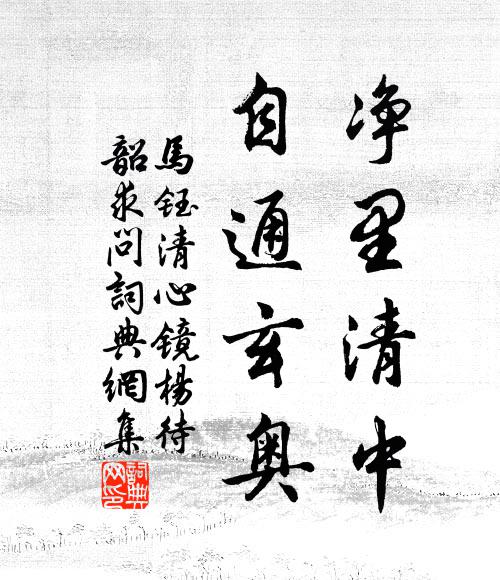 净里清中
自通玄奥
馬鈺清心鏡楊待
韶求問詞典網集
詞典
网印